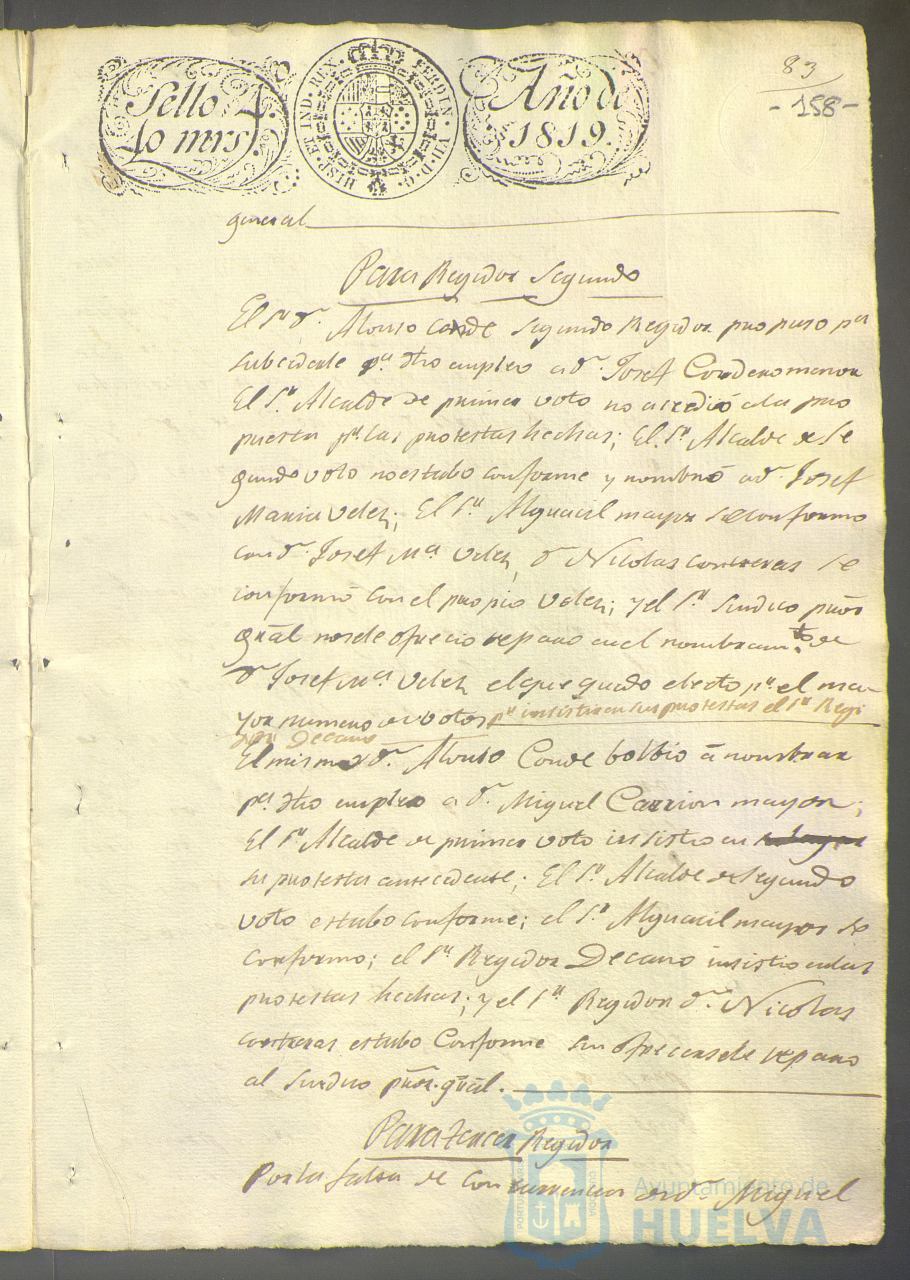 83
-158-
Sello 4.
40 mrs.
HISP. ET IND. REX. FERDIN. VII. D. G.
Año de
1819.
general
Para Regidor Segundo
El Sr. Dn. Alonso Conde Segundo Regidor propuso pa
subcederle pa. dho empleo a Dn. Josef Cordero menor
El Sr. Alcalde de primer voto no accedió a la pro
puesta pr. las protestas hechas; El Sr. Alcalde de Se
gundo voto no estubo conforme y nombró a Dn. Josef
Maria Velez; El Sr. Alguacil mayor se conformo
con Dn. Josef Ma. Velez, Dn. Nicolas Contreras se
conformó con el propio Velez; y el Sr. Sindico prōr
grāl no se le ofrecio reparo en el nombramto. de
Dn. Josef Ma. Velez el que quedo electo pr. el ma-
yor numero de votos pr. insistir en sus protestas el Sr. Regi
dor Decano
El mismo Dn. Alonso Conde bolbio á nombrar
pa. dho empleo a Dn. Miguel Carrion mayor;
El Sr. Alcalde de primer voto insistio en
su protesta antecedente; El Sr. Alcalde de Segundo
voto estubo conforme; el Sr. Alguacil mayor se
conformo; el Sr. Regidor Decano insistio en las
protestas hechas; y el Sr. Regidor Dn. Nicolas
Contreras estubo Conforme sin ofrecersele reparo
al Sindico prōr. grāl.
Para tercer Regidor
Por la falta de concurrencia de Dn. Miguel
Ayuntamiento de
HUELVA